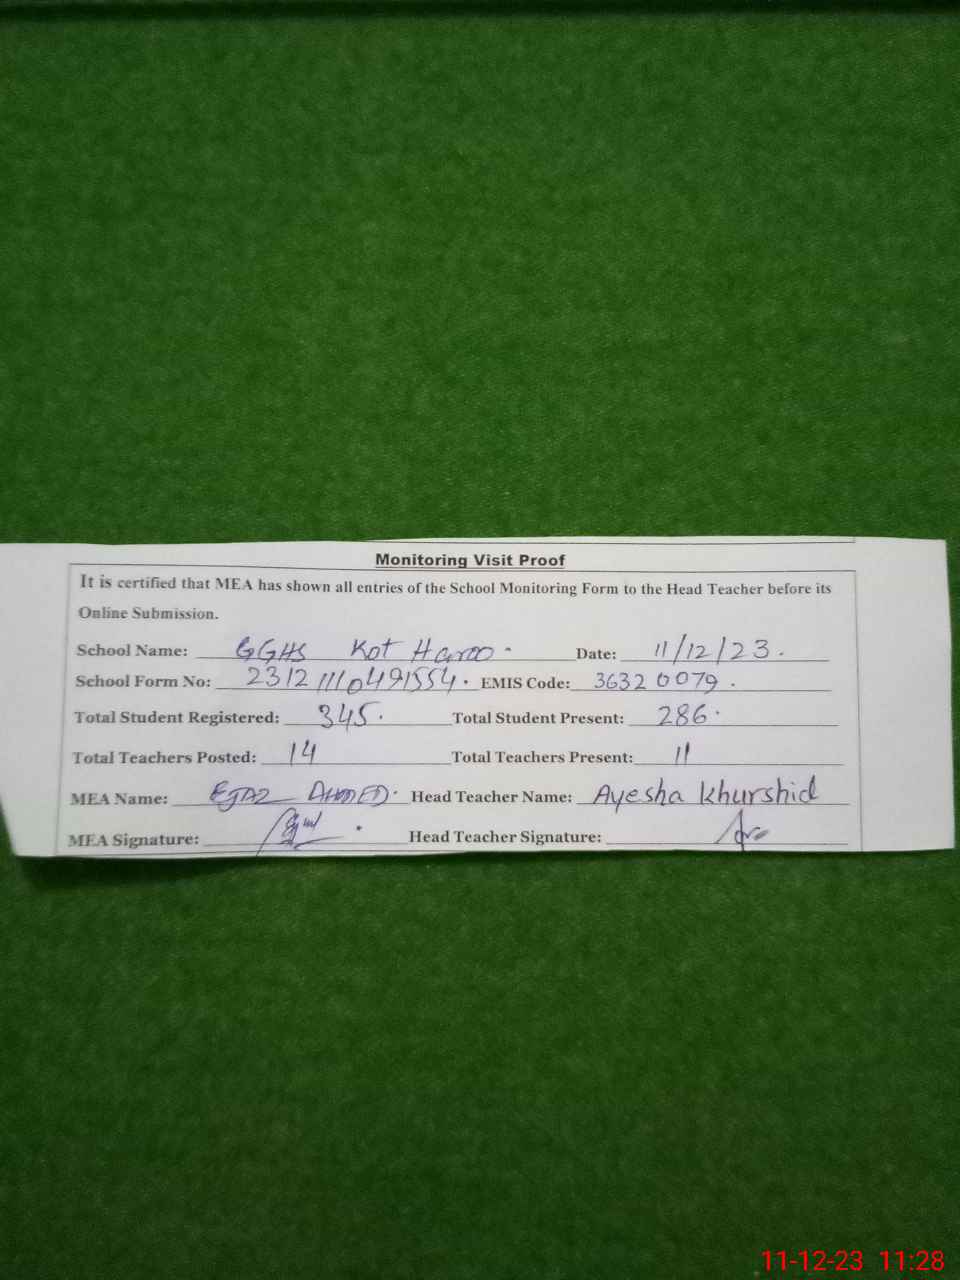 Monitoring Visit Proof
It is certified that MEA has shown all entries of the School Monitoring Form to the Head Teacher before its
Online Submission.
School Name: GGHS Kot Haroo Date: 11/12/23.
School Form No: 231211110491554. EMIS Code: 36320079.
Total Student Registered: 345. Total Student Present: 286.
Total Teachers Posted: 14 Total Teachers Present: 11
MEA Name: EJAZ AHMED. Head Teacher Name: Ayesha Khurshid
MEA Signature: Head Teacher Signature:
11-12-23 11:28